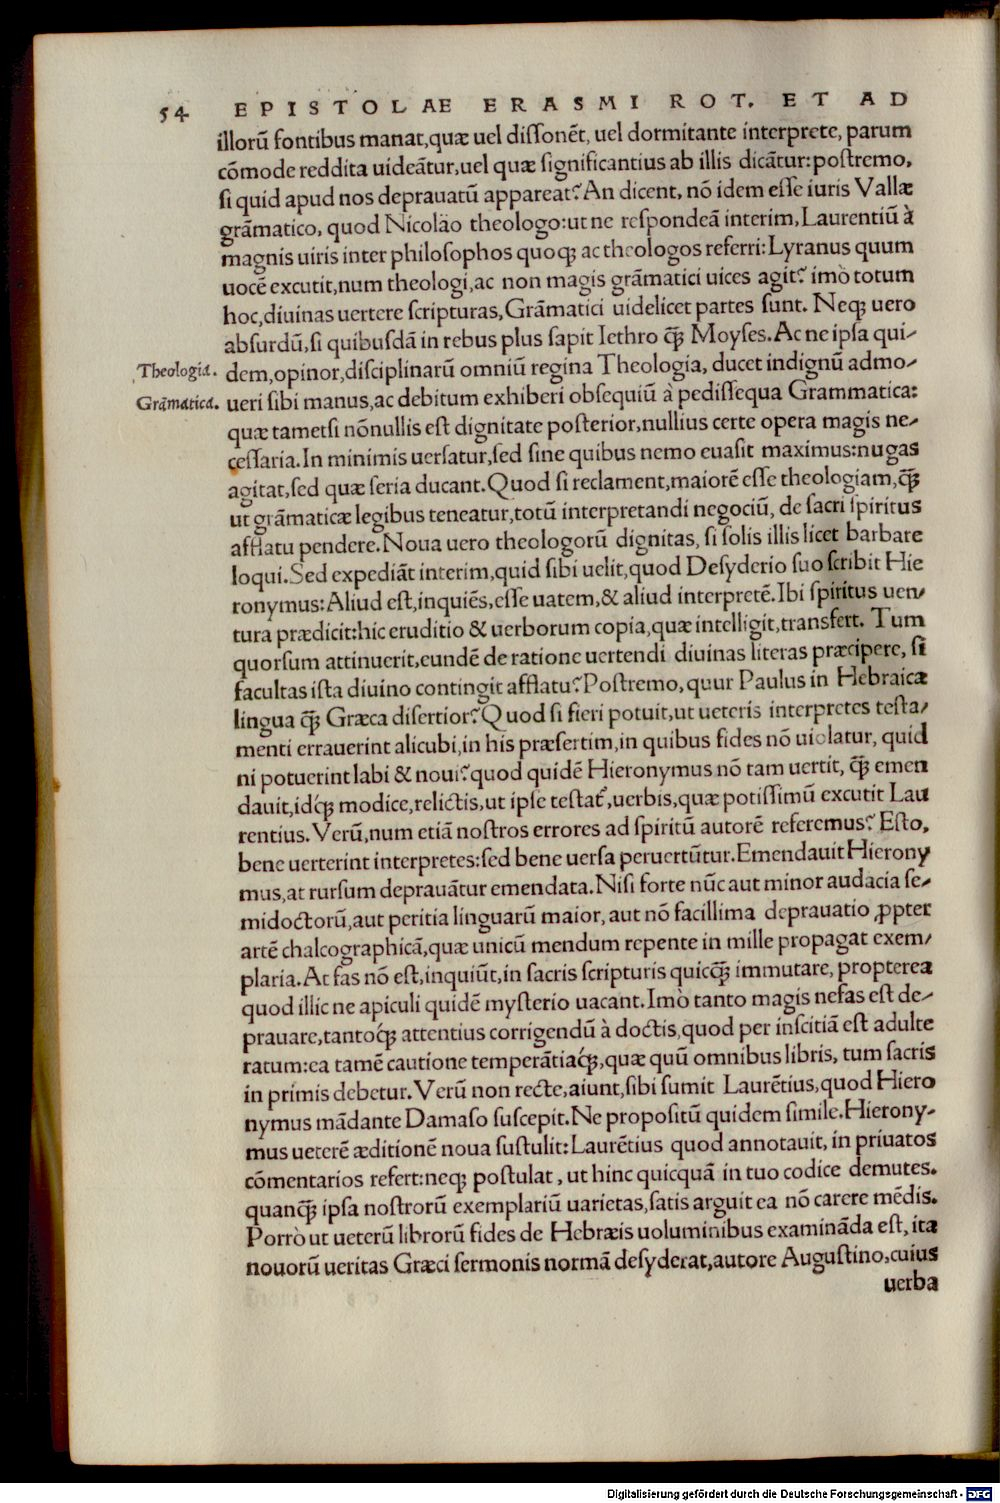 54 EPISTOLAE ERASMI ROT. ET AD
illorū fontibus manat,quæ uel diſſonēt, uel dormitante interprete, parum
cōmode reddita uideātur,uel quæ ſignificantius ab illis dicātur:poſtremo,
ſi quid apud nos deprauatū appareat? An dicent, nō idem eſſe iuris Vallæ
grāmatico, quod Nicolao theologo:ut ne reſpondeā interim, Laurentiū à
magnis uiris inter philoſophos quoqꝫ ac theologos referri: Lyranus quum
uocē excutit,num theologi,ac non magis grāmatici uices agit? imò totum
hoc,diuinas uertere ſcripturas, Grāmatici uidelicet partes ſunt. Neqꝫ uero
abſurdū,ſi quibuſdā in rebus plus ſapit Iethro q̄ꝫ Moyſes. Ac ne ipſa qui⸗
Theologia. dem,opinor,diſciplinarū omniū regina Theologia, ducet indignū admo⸗
Grāmatica. ueri ſibi manus,ac debitum exhiberi obſequiū à pediſſequa Grammatica:
quæ tametſi nōnullis eſt dignitate poſterior,nullius certe opera magis ne⸗
ceſſaria. In minimis uerſatur,ſed ſine quibus nemo euaſit maximus:nugas
agitat,ſed quæ ſeria ducant. Quod ſi reclament,maiorē eſſe theologiam,q̄ꝫ
ut grāmaticæ legibus teneatur,totū interpretandi negociū, de ſacri ſpiritus
afflatu pendere. Noua uero theologorū dignitas, ſi ſolis illis licet barbare
loqui. Sed expediāt interim,quid ſibi uelit,quod Deſyderio ſuo ſcribit Hie
ronymus: Aliud eſt,inquiēs,eſſe uatem,& aliud interpretē. Ibi ſpiritus uen⸗
tura prædicit:hic eruditio & uerborum copia,quæ intelligit,transfert. Tum
quorſum attinuerit,eundē de ratione uertendi diuinas literas præcipere, ſi
facultas iſta diuino contingit afflatu? Poſtremo, quur Paulus in Hebraica
lingua q̄ꝫ Græca diſertior? Quod ſi fieri potuit,ut ueteris interpretes teſta⸗
menti errauerint alicubi,in his præſertim,in quibus fides nō uiolatur, quid
ni potuerint labi & noui? quod quidē Hieronymus nō tam uertit, q̄ꝫ emen
dauit,idq́ꝫ modice,relictis,ut ipſe teſtať,uerbis,quæ potiſſimū excutit Lau
rentius. Verū,num etiā noſtros errores ad ſpiritū autorē referemus? Eſto,
bene uerterint interpretes:ſed bene uerſa peruertūtur. Emendauit Hierony
mus,at rurſum deprauātur emendata. Niſi forte nūc aut minor audacia ſe⸗
midoctorū,aut peritia linguarū maior, aut nō facillima deprauatio ꝓpter
artē chalcographicā,quæ unicū mendum repente in mille propagat exem⸗
plaria. At fas nō eſt,inquiūt,in ſacris ſcripturis quicq̄ꝫ immutare, propterea
quod illic ne apiculi quidē myſterio uacant. Imò tanto magis nefas eſt de⸗
prauare,tantoq́ꝫ attentius corrigendū à doctis,quod per inſcitiā eſt adulte
ratum:ea tamē cautione temperātiaq́ꝫ,quæ quū omnibus libris, tum ſacris
in primis debetur. Verū non recte,aiunt,ſibi ſumit Laurētius,quod Hiero
nymus mādante Damaſo ſuſcepit. Ne propoſitū quidem ſimile. Hierony⸗
mus ueterē æditionē noua ſuſtulit: Laurētius quod annotauit, in priuatos
cōmentarios refert:neqꝫ poſtulat, ut hinc quicquā in tuo codice demutes.
quanq̄ꝫ ipſa noſtrorū exemplariū uarietas,ſatis arguit ea nō carere mēdis.
Porrò ut ueterū librorū fides de Hebræis uoluminibus examināda eſt, ita
nouorū ueritas Græci ſermonis normā deſyderat,autore Auguſtino,cuius
uerba
Digitalisierung gefördert durch die Deutsche Forschungsgemeinschaft - DFG